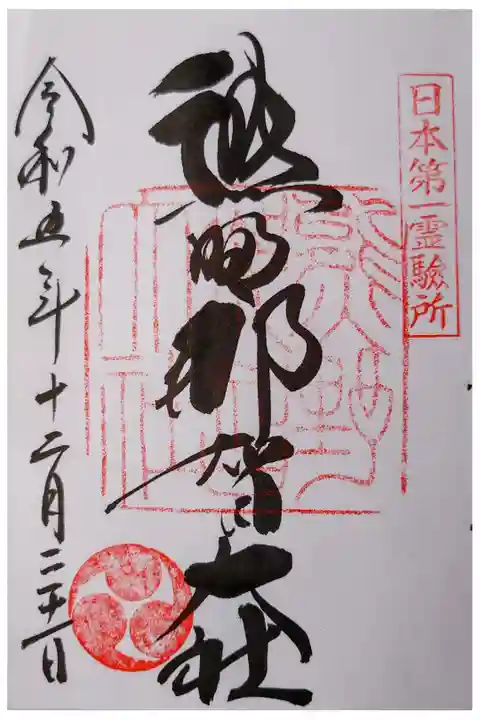 日本第一霊験所
熊野那智大社
令和五年十二月二十一日